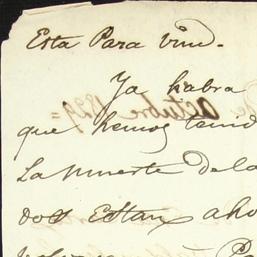 Esta Para vmd.
Ya habra
que hemos tenid
La muerte de la
dos Estan aho